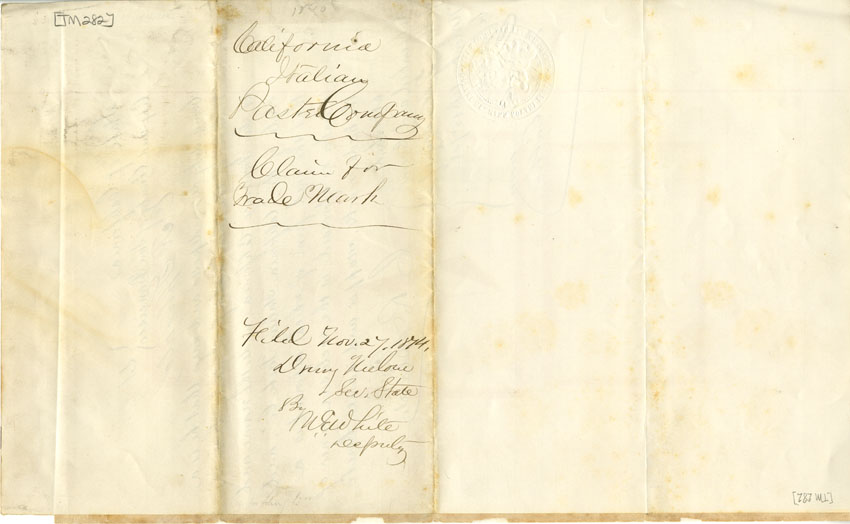 [TM282]
California
Italian
Paste Company
Claim for
Trade Mark
Filed Nov. 27, 1874,
Drury Melone
Sec. State
By
Deputy
[TM 282]